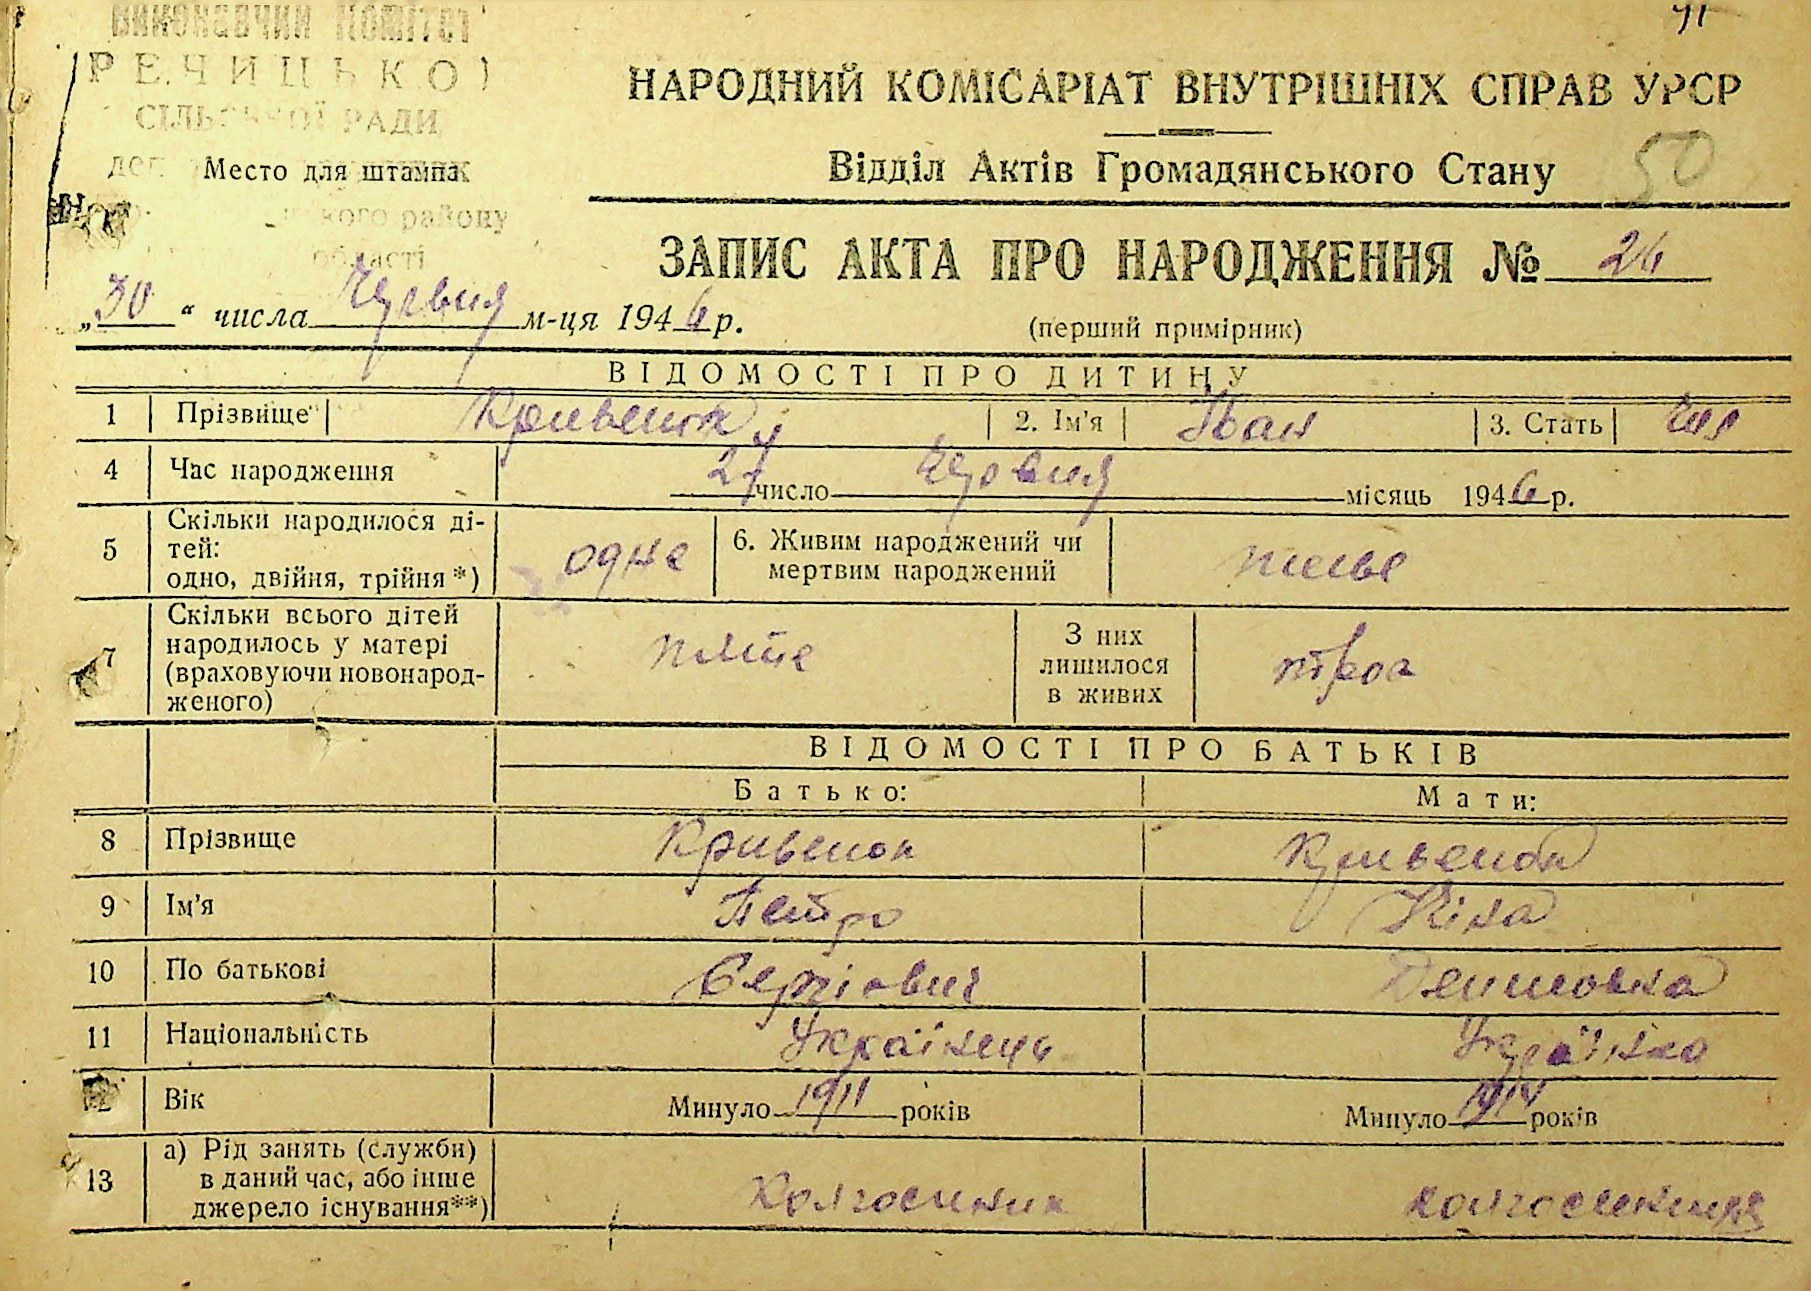 ВИКОНАВЧИЙ КОМІТЕТ
РЕЧИЦЬКОЇ
СІЛЬСЬКОЇ РАДИ
Место для штампа
району
області
41
НАРОДНИЙ КОМІСАРІАТ ВНУТРІШНІХ СПРАВ УРСР
Відділ Актів Громадянського Стану
50
ЗАПИС АКТА ПРО НАРОДЖЕННЯ № 26
„30“ числа Червня м-ця 1946 р.
(перший примірник)
ВІДОМОСТІ ПРО ДИТИНУ
1 Прізвище 2. Ім'я Іван 3. Стать
4 Час народження 27 число Червня місяць 1946 р.
5 Скільки народилося ді-
тей:
одно, двійня, трійня *) одне 6. Живим народжений чи
мертвим народжений
7 Скільки всього дітей
народилось у матері
(враховуючи новонарод-
женого) пяте З них
лишилося
в живих троє
ВІДОМОСТІ ПРО БАТЬКІВ
Батько: Мати:
8 Прізвище Кривенок Кривенок
9 Ім'я Петро Ніна
10 По батькові Сергіович Денисовна
11 Національність Українець Українка
12 Вік Минуло 1911 років Минуло 1914 років
13 а) Рід занять (служби)
в даний час, або інше
джерело існування**) Колгоспник колгоспниця